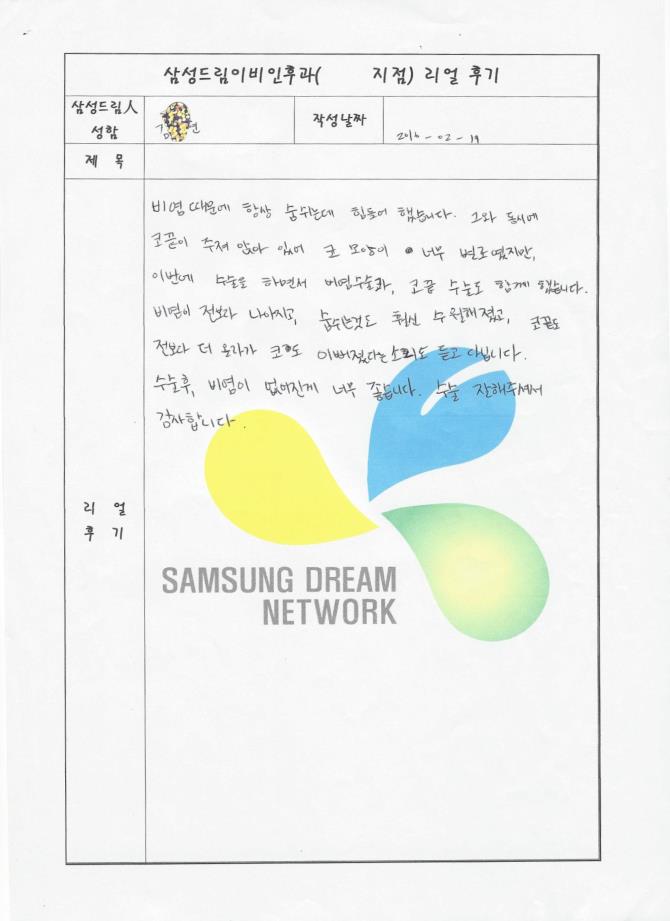 삼성드림이비인후과( 지점) 리얼 후기
삼성드림人
성함
작성날짜
2016-02-19
제 목
비염때문에 항상 숨쉬는데 힘들어 했습니다. 그와 동시에
코끝이 주저 앉아 있어 코 모양이 너무 별로였지만,
이번에 수술을 하면서 비염수술과, 코끝 수술도 함께 했습니다.
비염이 전보다 나아지고, 숨쉬는것도 훨씬 수월해졌고, 코끝도
전보다 더 올라가 코도 이뻐졌다는 소리도 듣고 다닙니다.
수술후, 비염이 없어진게 너무 좋습니다. 수술 잘해주셔서
감사합니다.
리 얼
후 기
SAMSUNG DREAM
NETWORK